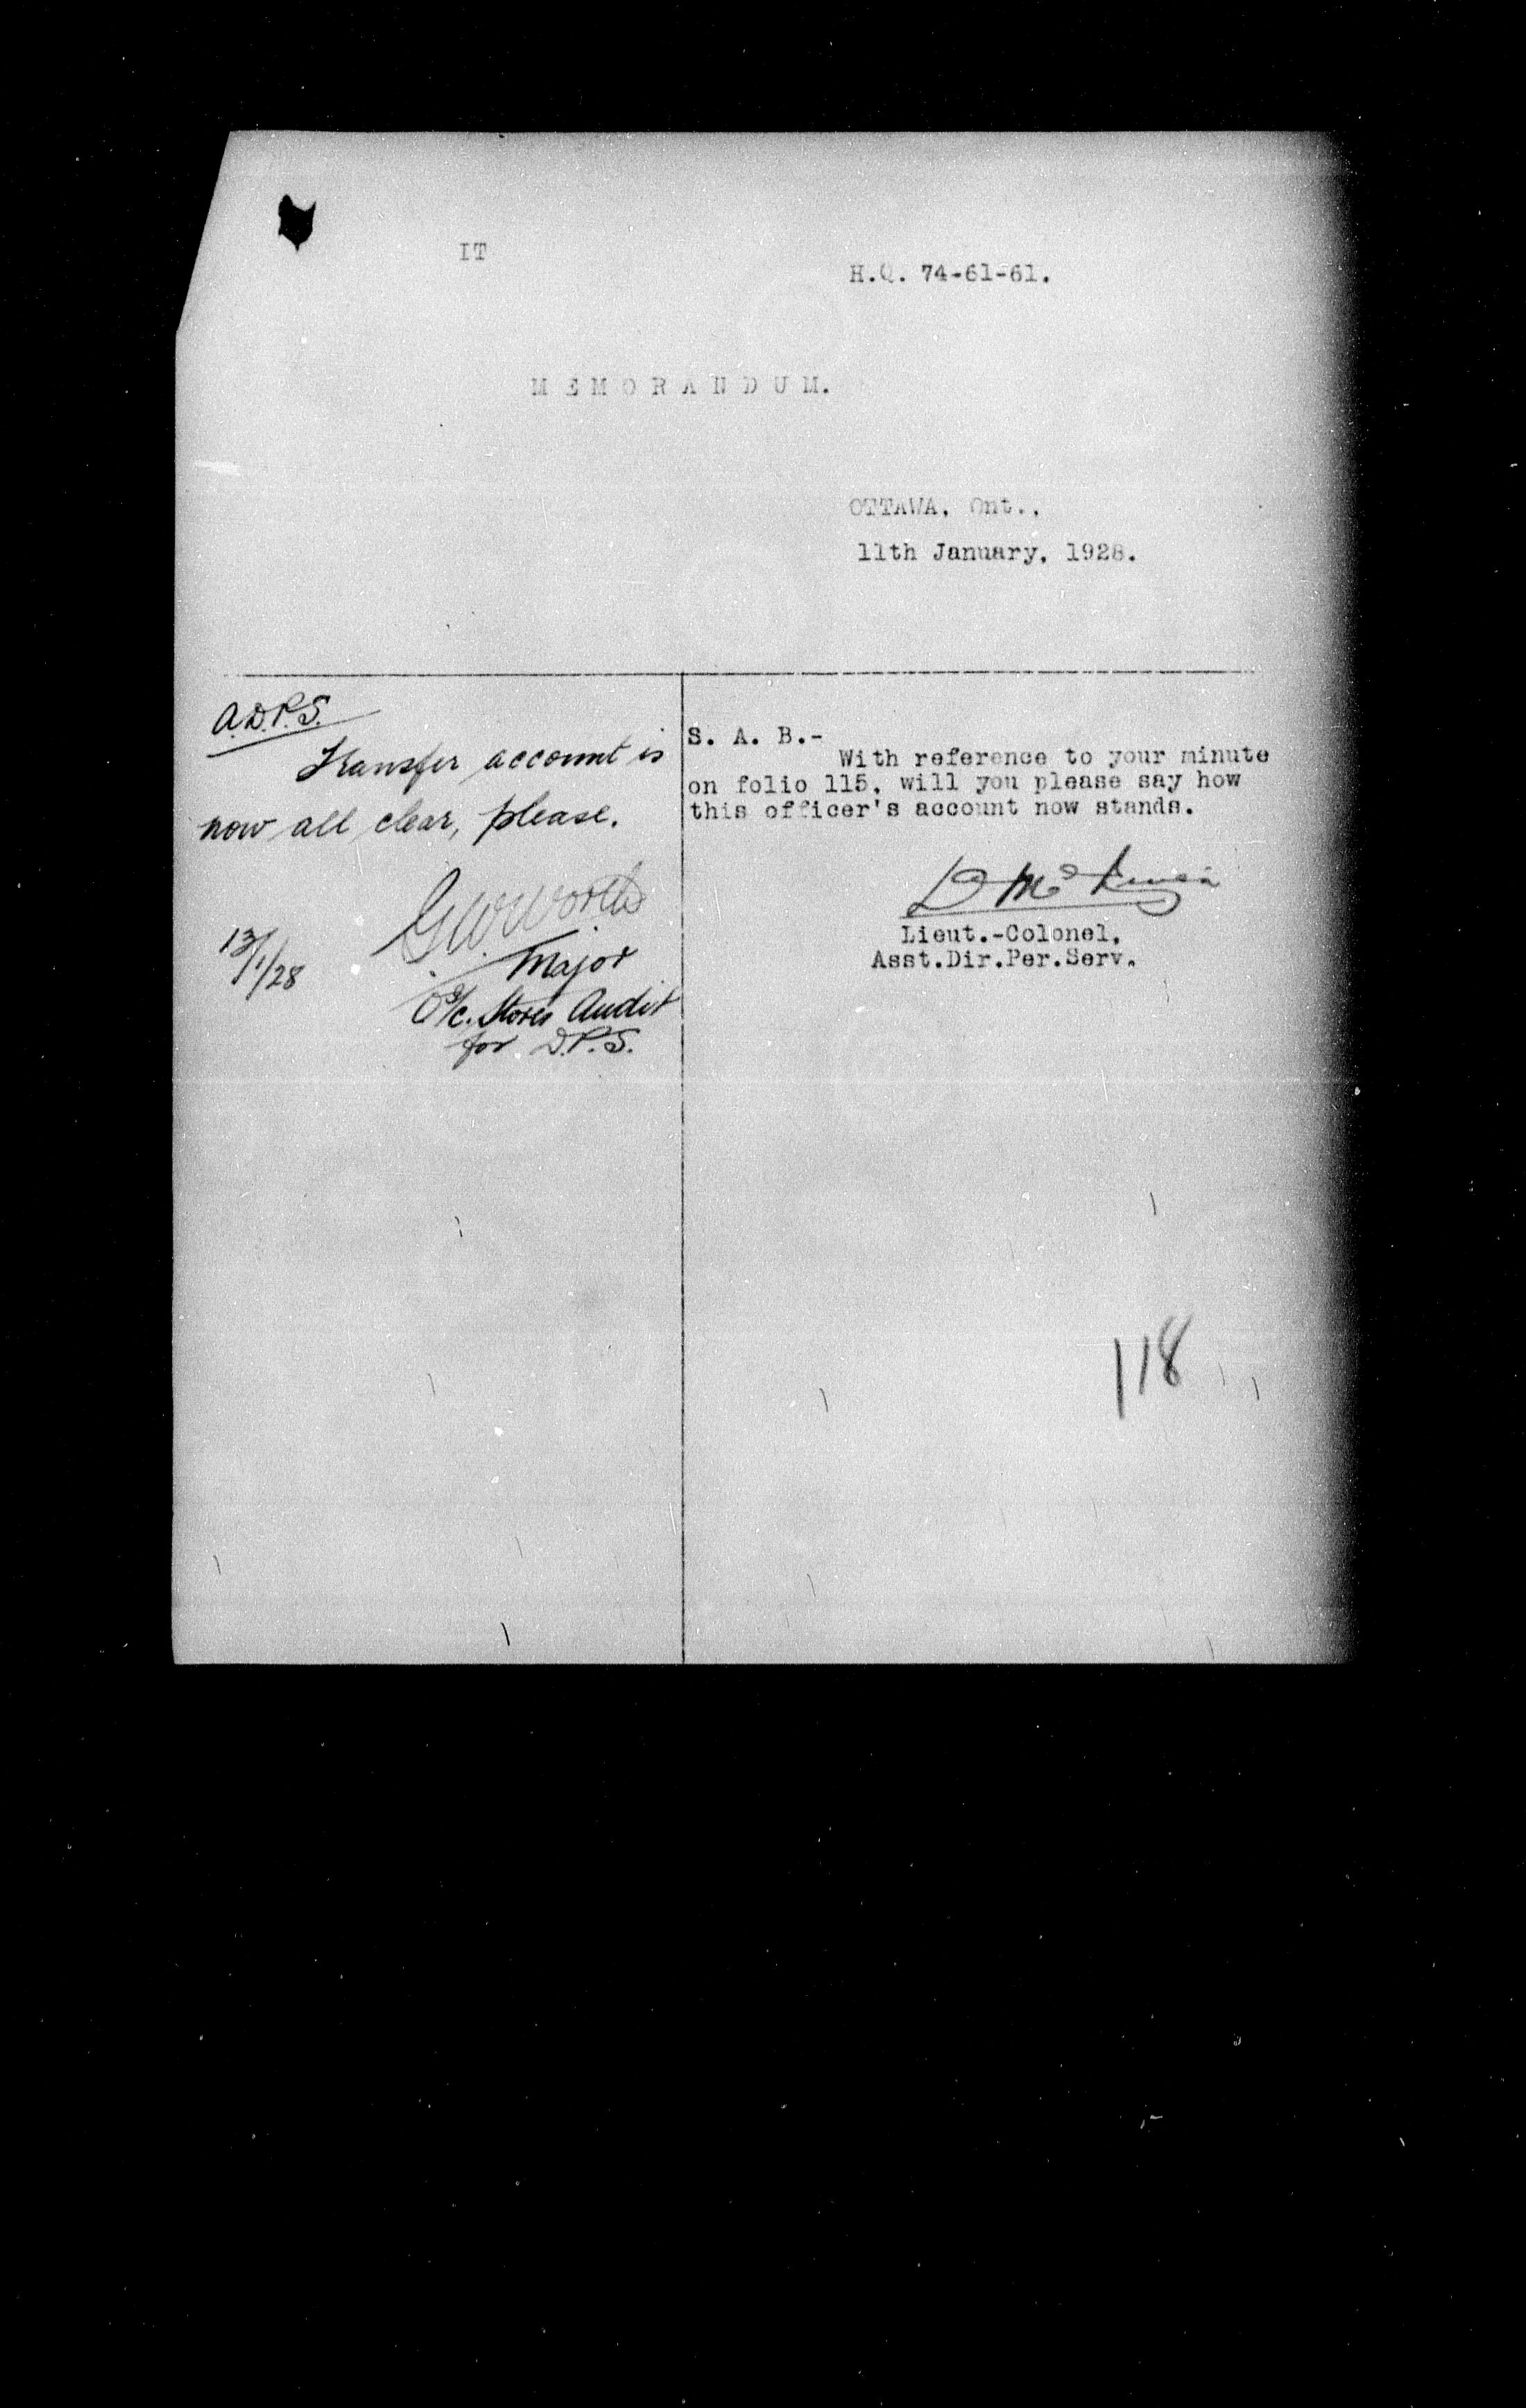 IT
H.Q. 74-61-61.
MEMORANDUM.
OTTAWA, Ont.,
11th January, 1928.
A.D.P.S.
Transfer account is
now all clear, please.
Major
13/1/28
O i/c. Stores Audit
for D.P.S.
S. A. B.-
With reference to your minute
on folio 115, will you please say how
this officer's account now stands.
Lieut.-Colonel,
Asst.Dir.Per.Serv.
118